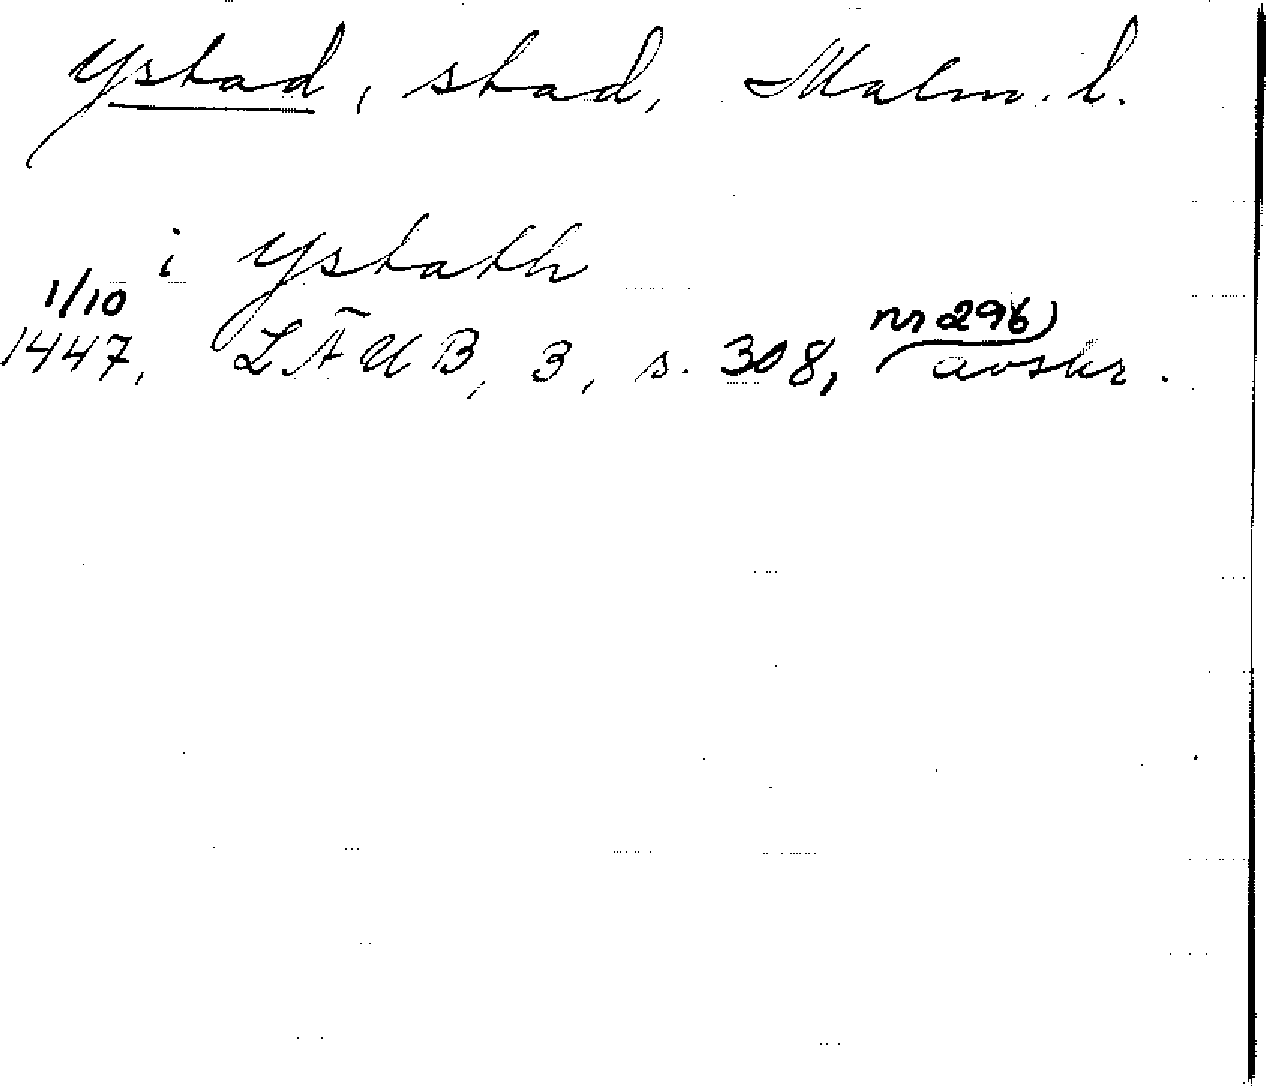 Ystad, stad, Malm. l.
i Ystath
1/10
1447, LÄUB, 3, s. 308, nr 296) avskr.